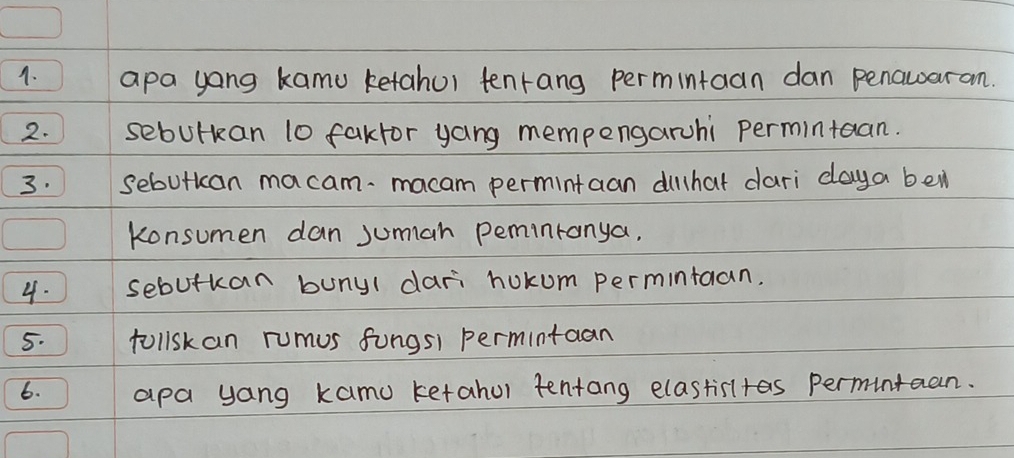 1. apa yang kamu ketahui tentang permintaan dan penawaran.
2. sebutkan 10 faktor yang mempengaruhi permintaan.
3. sebutkan macam-macam permintaan dilihat dari daya beli
konsumen dan jumlah pemintanya.
4. sebutkan bunyi dari hukum permintaan.
5. tuliskan rumus fungsi permintaan
6. apa yang kamu ketahui tentang elastisitas permintaan.